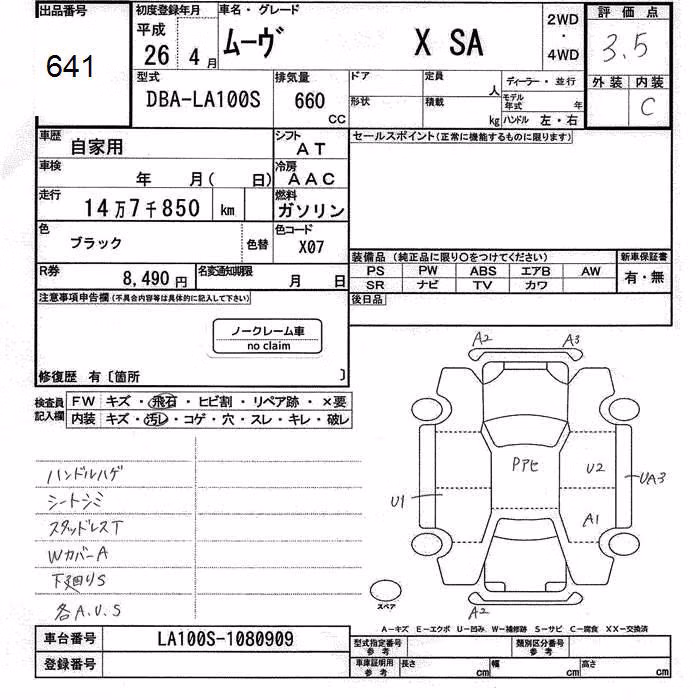 出品番号 初度登録年月 車名・グレード 2WD・4WD 評価点
641 平成 26 4月 ムーヴ X SA 3.5
型式 排気量 ドア 定員 人 ディーラー・並行 外装 内装
DBA-LA100S 660 CC 形状 積載 kg モデル年式 年 ハンドル 左・右 C
車歴 自家用 シフト AT セールスポイント(正常に機能するものに限ります)
車検 年 月( 日) 冷房 AAC
走行 14万7千850 km 燃料 ガソリン
色 ブラック 色替 色コード X07
装備品 (純正品に限り〇をつけてください) 新車保証書
PS PW ABS エアB AW 有・無
SR ナビ TV カワ
R券 8,490円 名変通知期限 月 日
注意事項申告欄(不具合内容等は具体的に記入して下さい) 後日品
ノークレーム車
no claim
修復歴 有〔箇所 〕
検査員記入欄 FW キズ・飛石・ヒビ割・リペア跡・×要
内装 キズ・汚レ・コゲ・穴・スレ・キレ・破レ
A2 A3
PアセU2
U1 UA3
A1
A2
ハンドルハゲ
シートシミ
スタッドレスT
WカバーA
下廻りS
各A.U.S
スペア
A-キズ E-エクボ U-凹み W-補修跡 S-サビ C-腐食 XX-交換済
車台番号 LA100S-1080909 型式指定番号 参考 類別区分番号 参考
登録番号 車庫証明用 参考 長さ cm 幅 cm 高さ cm